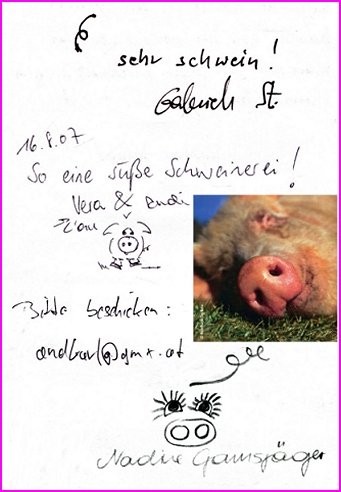 sehr schwein!
Gabriele St.
16.8.07
So eine süße Schweinerei!
Vera & Andi
Bitte beschicken:
andbar@gmx.at
Nadine Gamsjäger